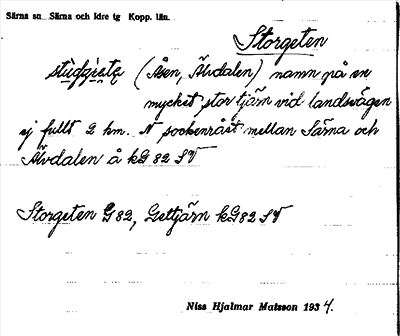 Särna sn Särna och Idre tg Kopp. län.
Storgeten
(Åsen, Älvdalen) namn på en
mycket stor tjärn vid landsvägen
ej fullt 2 km. N sockenrået mellan Särna och
Älvdalen å kG 82 SV
Storgeten G82, Gettjärn kG82 SV
Niss Hjalmar Matsson 1934.